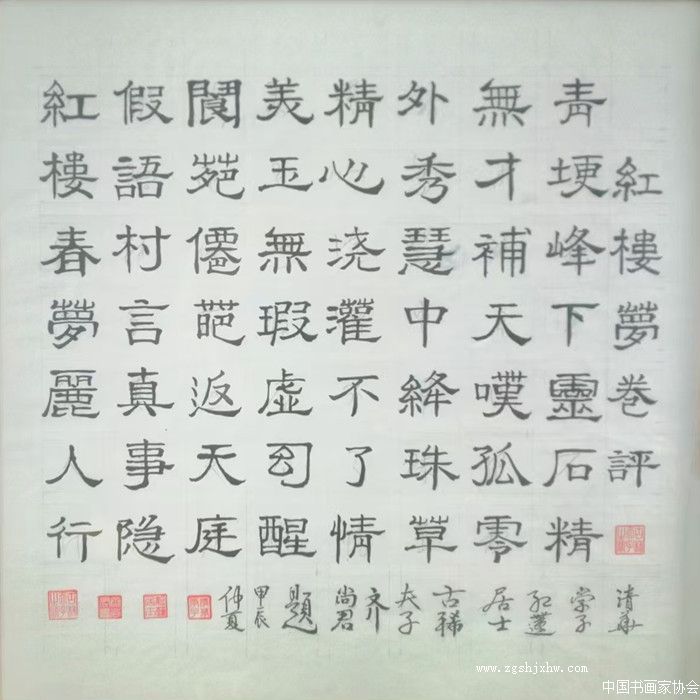 紅樓夢卷評
青埂峰下靈石精
無才補天嘆孤零
外秀慧中絳珠草
精心浇灌不了情
美玉無瑕虚幻醒
閬苑僊葩返天庭
假語村言真事隐
紅樓春夢麗人行
清華
学子
居士
古稀
夫子
尚君
題
甲辰
仲夏
www.zgshjxhw.com
中国书画家协会